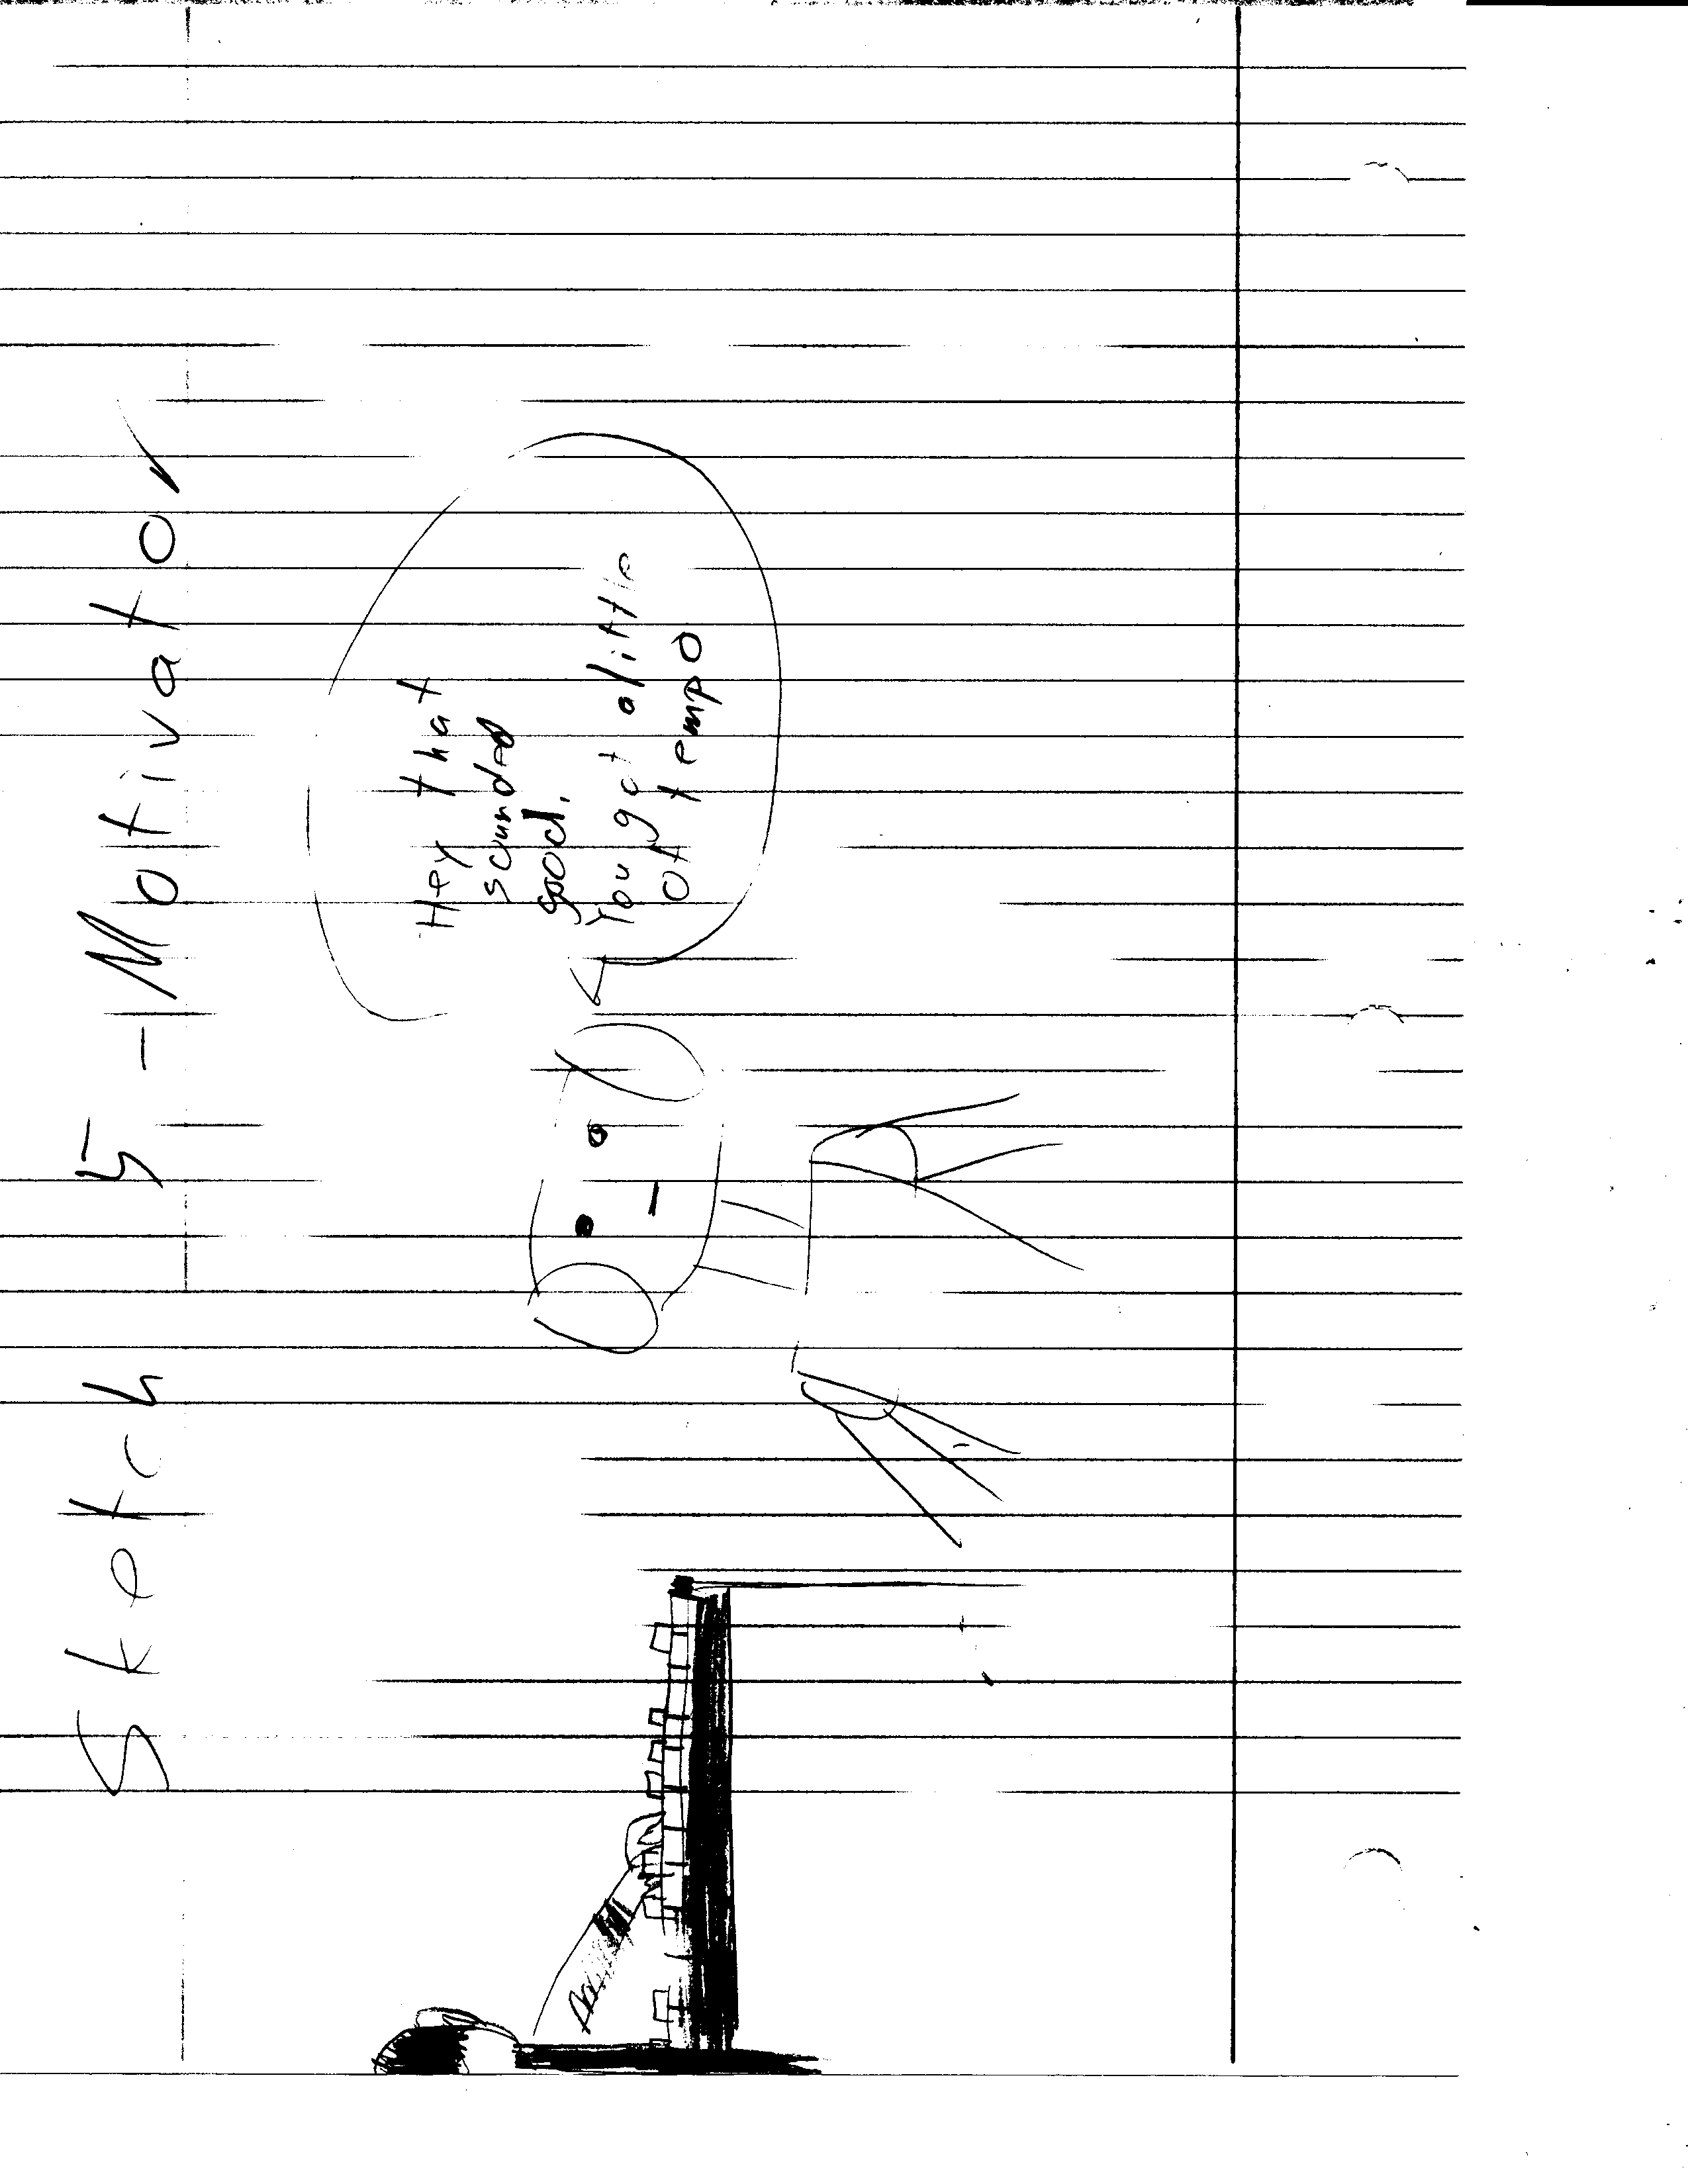 Sketch 5 - Motivator
Hey that
sounded
good.
You got alittle
of tempo